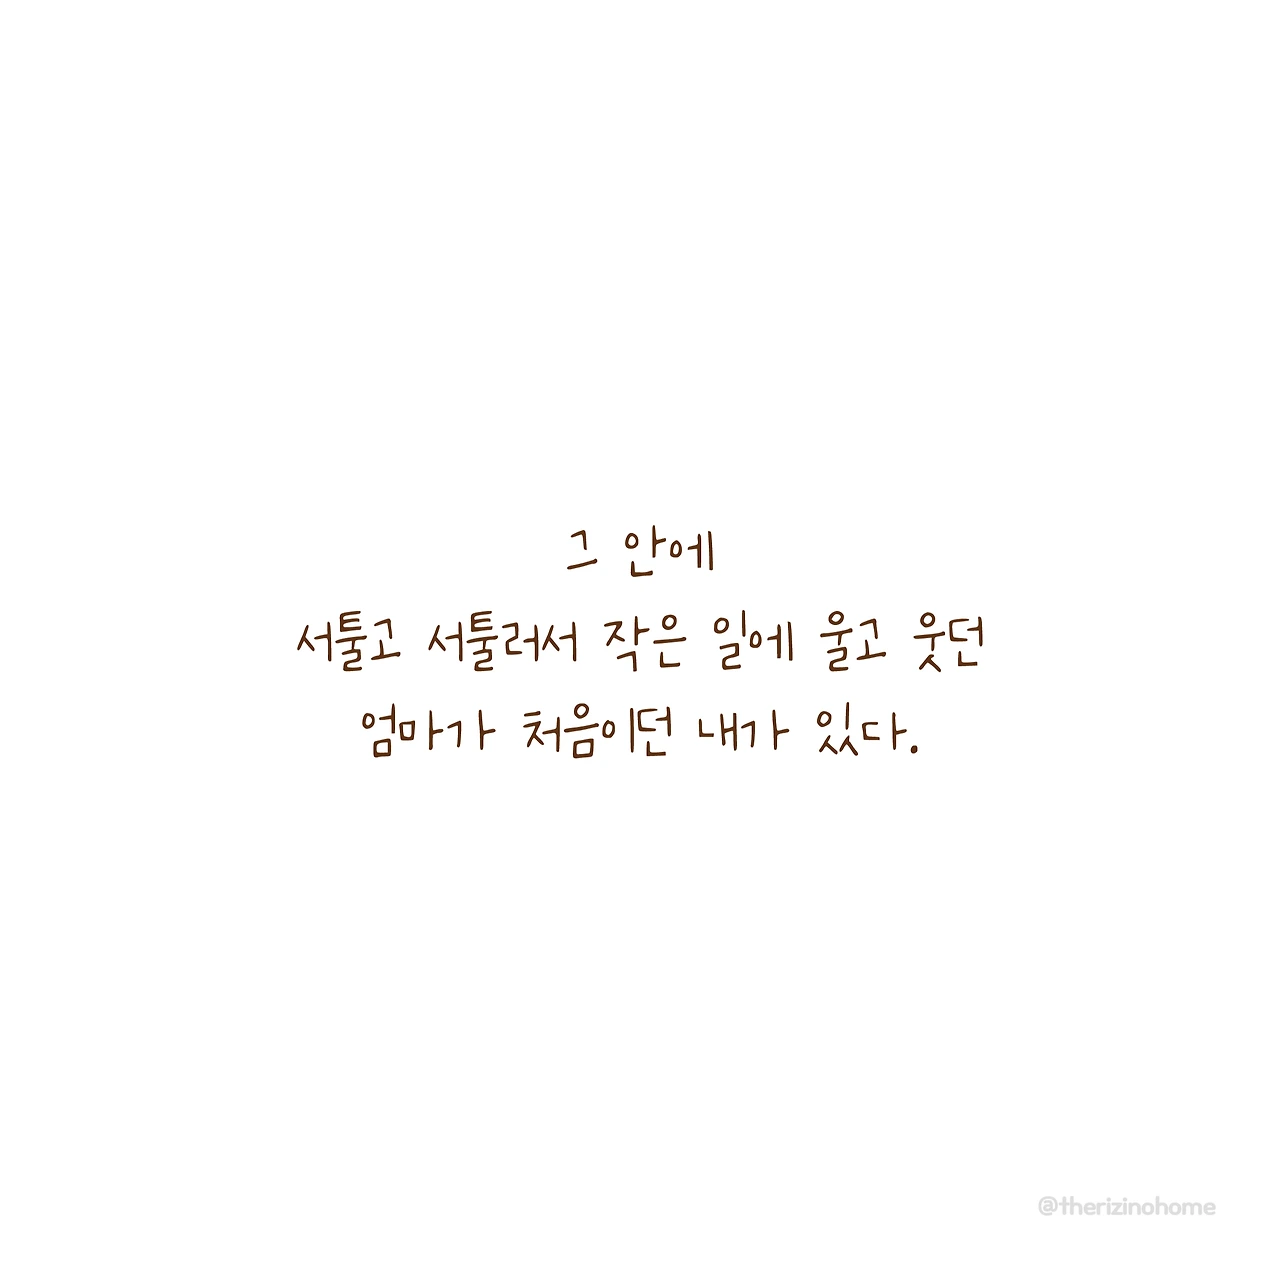 그 안에
서툴고 서툴러서 작은 일에 울고 웃던
엄마가 처음이던 내가 있다.
@therizinohome